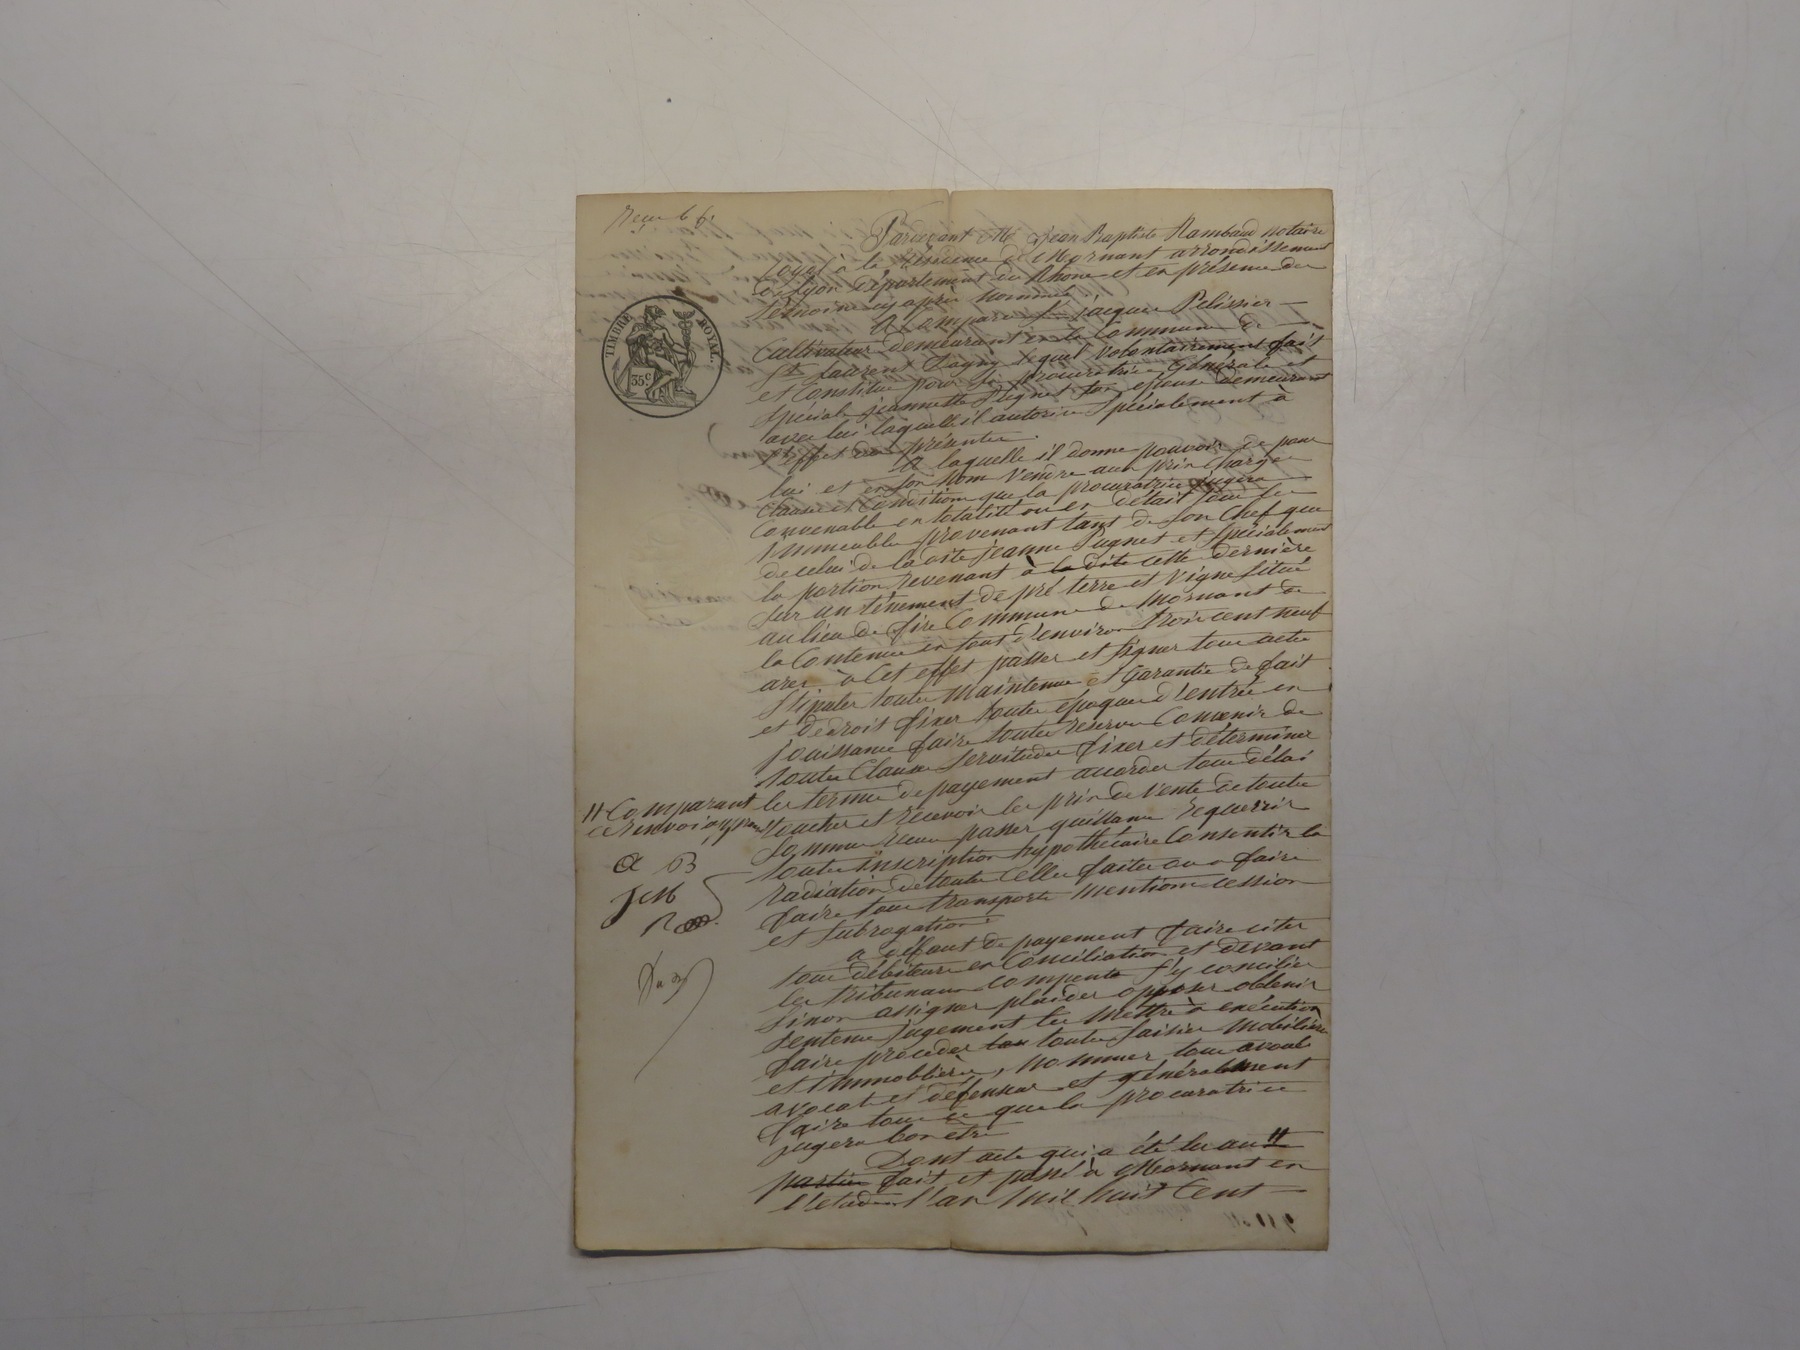 Pardevant Me Jean Baptiste Rambaud notaire
royal à la résidence de Mornant arrondissement
de Lyon département du Rhône et en présence des
témoins cy après nommés
A comparu Sr jacques Pelissier
Cultivateur demeurant en la Commune de
St Laurent Dagny lequel volontairement fait
et Constitue pour sa procuratrice Générale et
Spéciale jeannette Pugnet son épouse demeurant
avec lui laquelle il autorise Spécialement à
l'effet des présentes.
A laquelle il donne pouvoir de pour
lui et en son nom Vendre aux prix Charges
Clauses et Conditions que la procuratrice jugera
Convenable en totalité ou en détail tous les
immeubles provenant tant de son Chef que
de celui de la dite jeanne Pugnet et Spécialement
la portion revenant à la dite cette dernière
Sur un tènement de pré terre et vigne Situé
au lieu de Commune de Mornant de
la Contenue en tout d'environ trois cent neuf
ares à Cet effet passer et signer tous actes
Stipuler toutes Maintenues et Garanties de fait
et de droit fixer toutes époques d'entrée en
jouissance faire toutes réserves Convenir de
toutes Clauses Servitudes fixer et déterminer
les termes de payement accorder tous délais
toucher et recevoir les prix de Vente de toutes
Sommes reçues passer quittance requerrir
toutes inscriptions hypothécaires Consentir la
radiation de toutes Celles faites ou a faire
faire tous transports Mentions cession
et Subrogation
a défaut de payement faire citer
tous débiteurs en Conciliation et devant
les tribunaux compents s'y concilier
Sinon assigner plaider opposer obtenir
Sentences jugements les Mettre à exécution
faire procéder tou toutes saisies Mobilières
et immoblières, Nommer tous avoués
avocats et défenseur et généralement
faire tous ce que la procuratrice
jugera bon être
Dont acte qui a été lu au #
parties fait et passé à Mornant en
l'étude l'an Mil huit Cent
TIMBRE ROYAL.
35c
# Comparant
ce renvoi approuvé
JCM